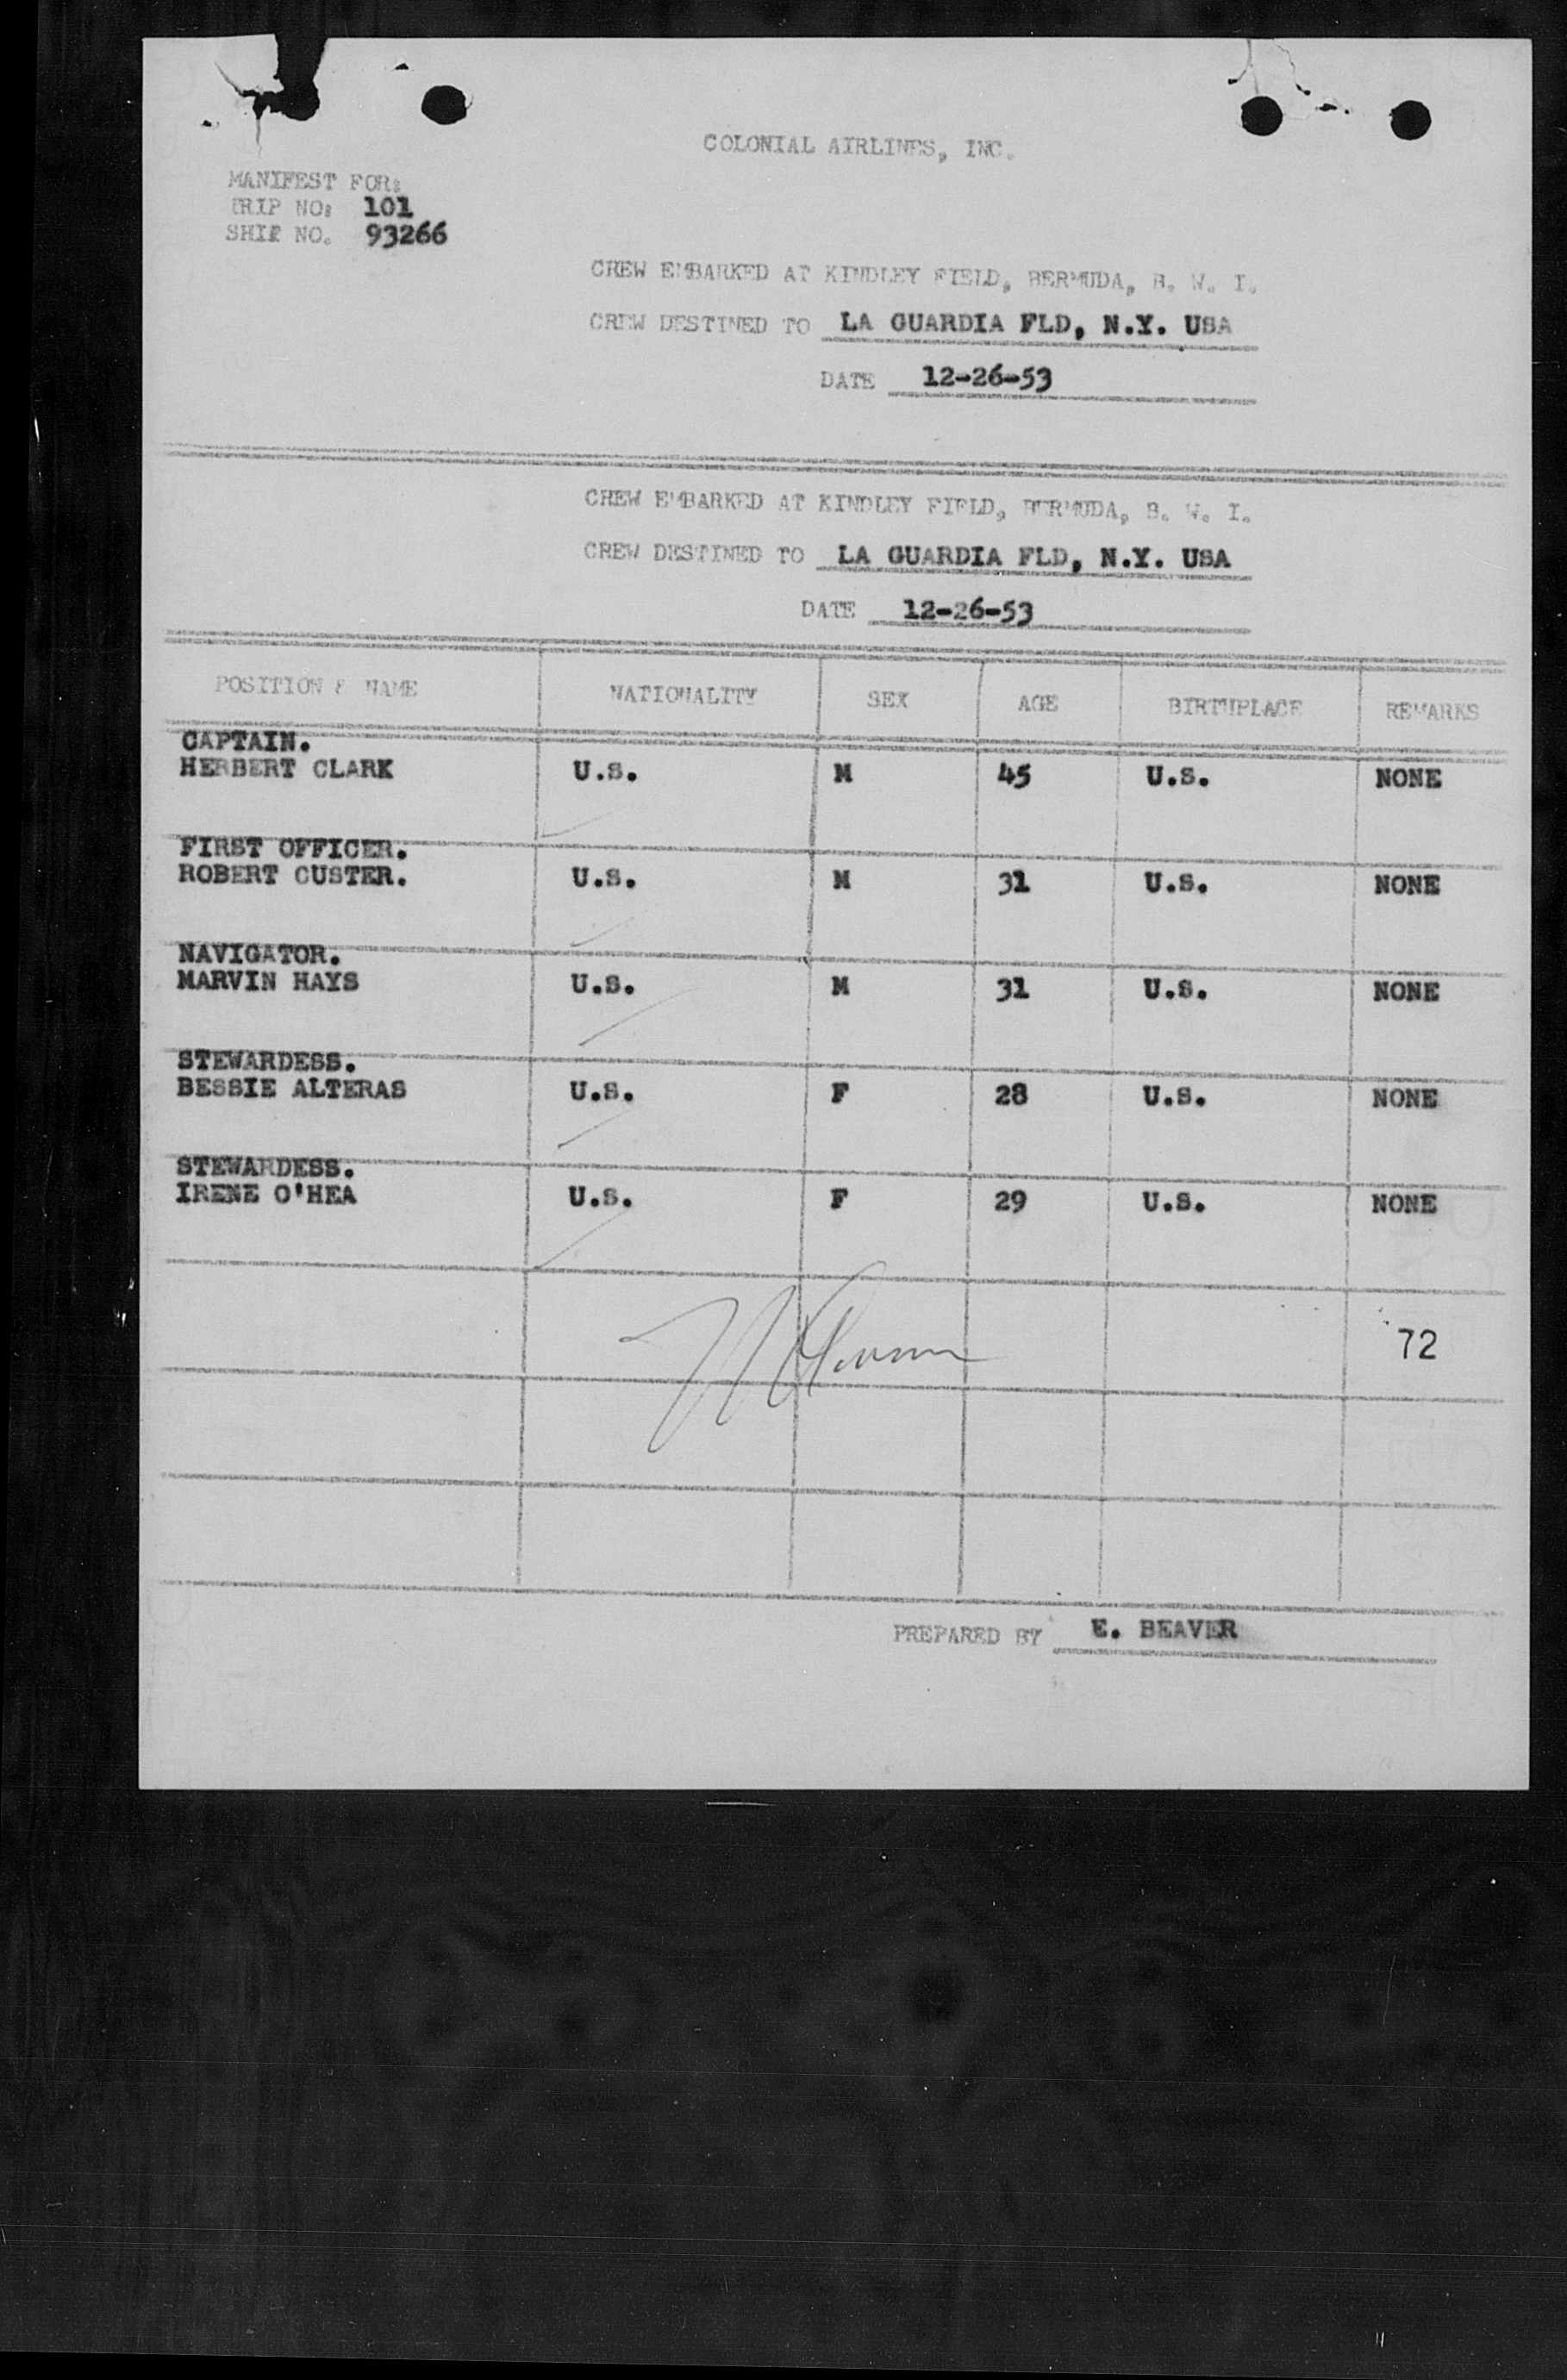 COLONIAL AIRLINES, INC.
MANIFEST FOR:
TRIP NO: 101
SHIP NO. 93266
CREW EMBARKED AT KINDLEY FIELD, BERMUDA, B. W. I.
CREW DESTINED TO LA GUARDIA FLD, N.Y. USA
DATE 12-26-53
CREW EMBARKED AT KINDLEY FIELD, BERMUDA, B. W. I.
CREW DESTINED TO LA GUARDIA FLD, N.Y. USA
DATE 12-26-53
POSITION & NAME NATIONALITY SEX AGE BIRTHPLACE REMARKS
CAPTAIN.
HERBERT CLARK U.S. M 45 U.S. NONE
FIRST OFFICER.
ROBERT CUSTER. U.S. M 31 U.S. NONE
NAVIGATOR.
MARVIN HAYS U.S. M 31 U.S. NONE
STEWARDESS.
BESSIE ALTERAS U.S. F 28 U.S. NONE
STEWARDESS.
IRENE O'HEA U.S. F 29 U.S. NONE
72
PREPARED BY E. BEAVER